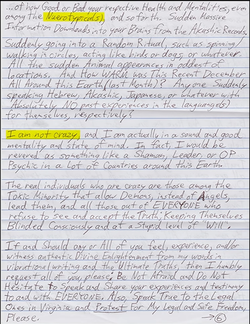 ow, Good or Bad your respective Health and Mentalities, even
among the Nuerotypicals), and so forth. Sudden Massive
Information Downloads into your Brains from the Akashic Records,
Suddenly going into a Random Ritual, such as spinning/
walking in circles, acting like birds or dogs, or whatever
All the sudden Animal appearances in oddest of
locations. And How WEIRd was This Recent December
All Around this Earth (Last Month)? Anyone Suddenly
speaking Hebrew, Akashic, Japanese, or whatever with
Absolutely NO past experiences in the language(s)
for themselves, respectively?
I am not crazy, and I am actually in a sound and good
mentality and state of mind. In fact, I would be
revered as something like a Shaman, Leader, or OP
Psychic in a Lot of Countries around this Earth
The real individuals who are crazy are those among the
Toxic Minority that allow Demons, instead of Angels,
lead them, and all those out of EVERYONE who
refuse to see and accept the Truth, Keeping Themselves
Blinded Consciously and at a Stupid level of Will.
If and Should any or All of you feel, experience, and/or
witness authentic Divine Enlightenment from my words in
Vibrational writing and the Ultimate Truths, then I humbly
request all of you, please, Be Not Afraid and Do Not
Hesitate to Speak and Share your experiences and testimony
to and with EVERYONE. Also, Speak True to the Legal
Ones in Virginia and Protest For My Legal and Safe Freedom,
Please. →6